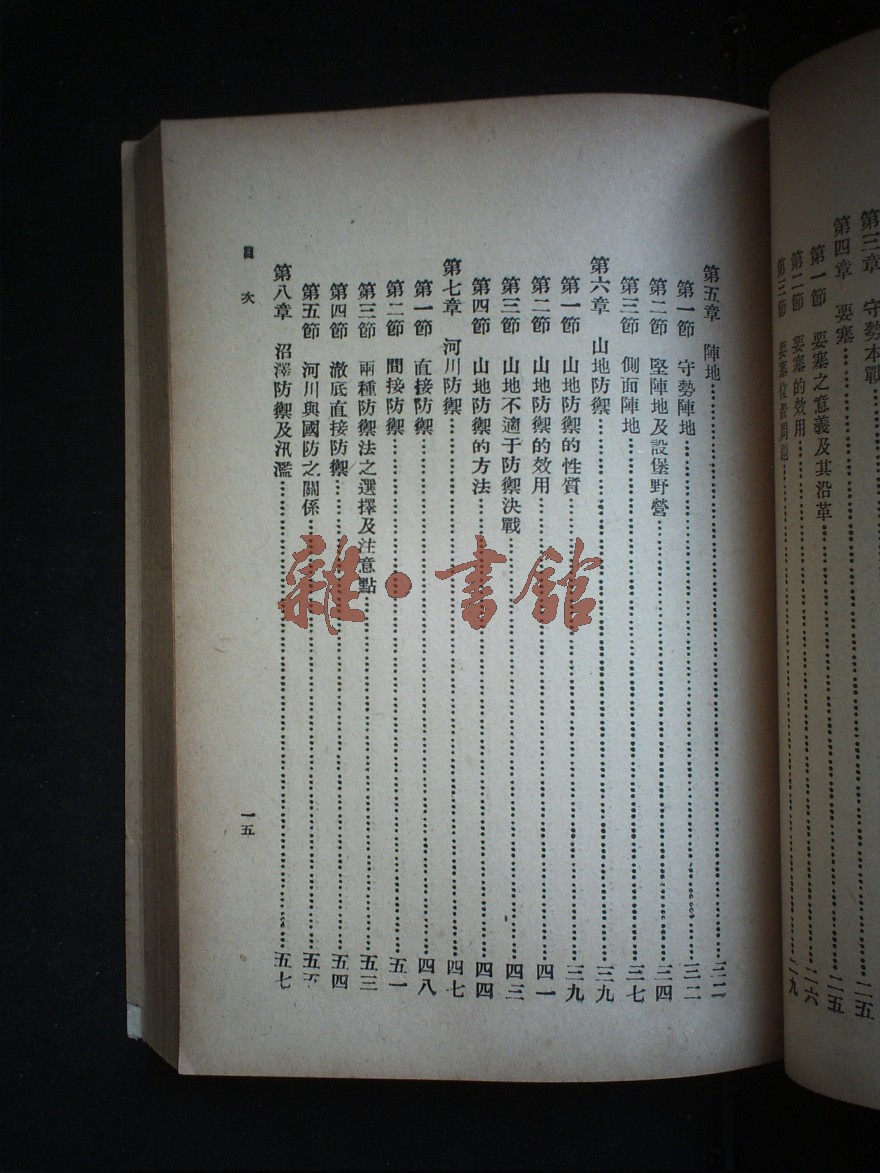 第三章　守勢本戰……二五
第四章　要塞……二五
第一節　要塞之意義及其沿革
第二節　要塞的效用……二六
第三節　要塞位置問題……二九
第五章　陣地……三二
第一節　守勢陣地……三二
第二節　堅陣地及設堡野營……三四
第三節　側面陣地……三七
第六章　山地防禦……三九
第一節　山地防禦的性質……三九
第二節　山地防禦的效用……四一
第三節　山地不適于防禦決戰……四三
第四節　山地防禦的方法……四四
第七章　河川防禦……四七
第一節　直接防禦……四八
第二節　間接防禦……五一
第三節　兩種防禦法之選擇及注意點……五三
第四節　澈底直接防禦……五四
第五節　河川與國防之關係……五五
第八章　沼澤防禦及汎濫……五七
目次
一五
雜·書館